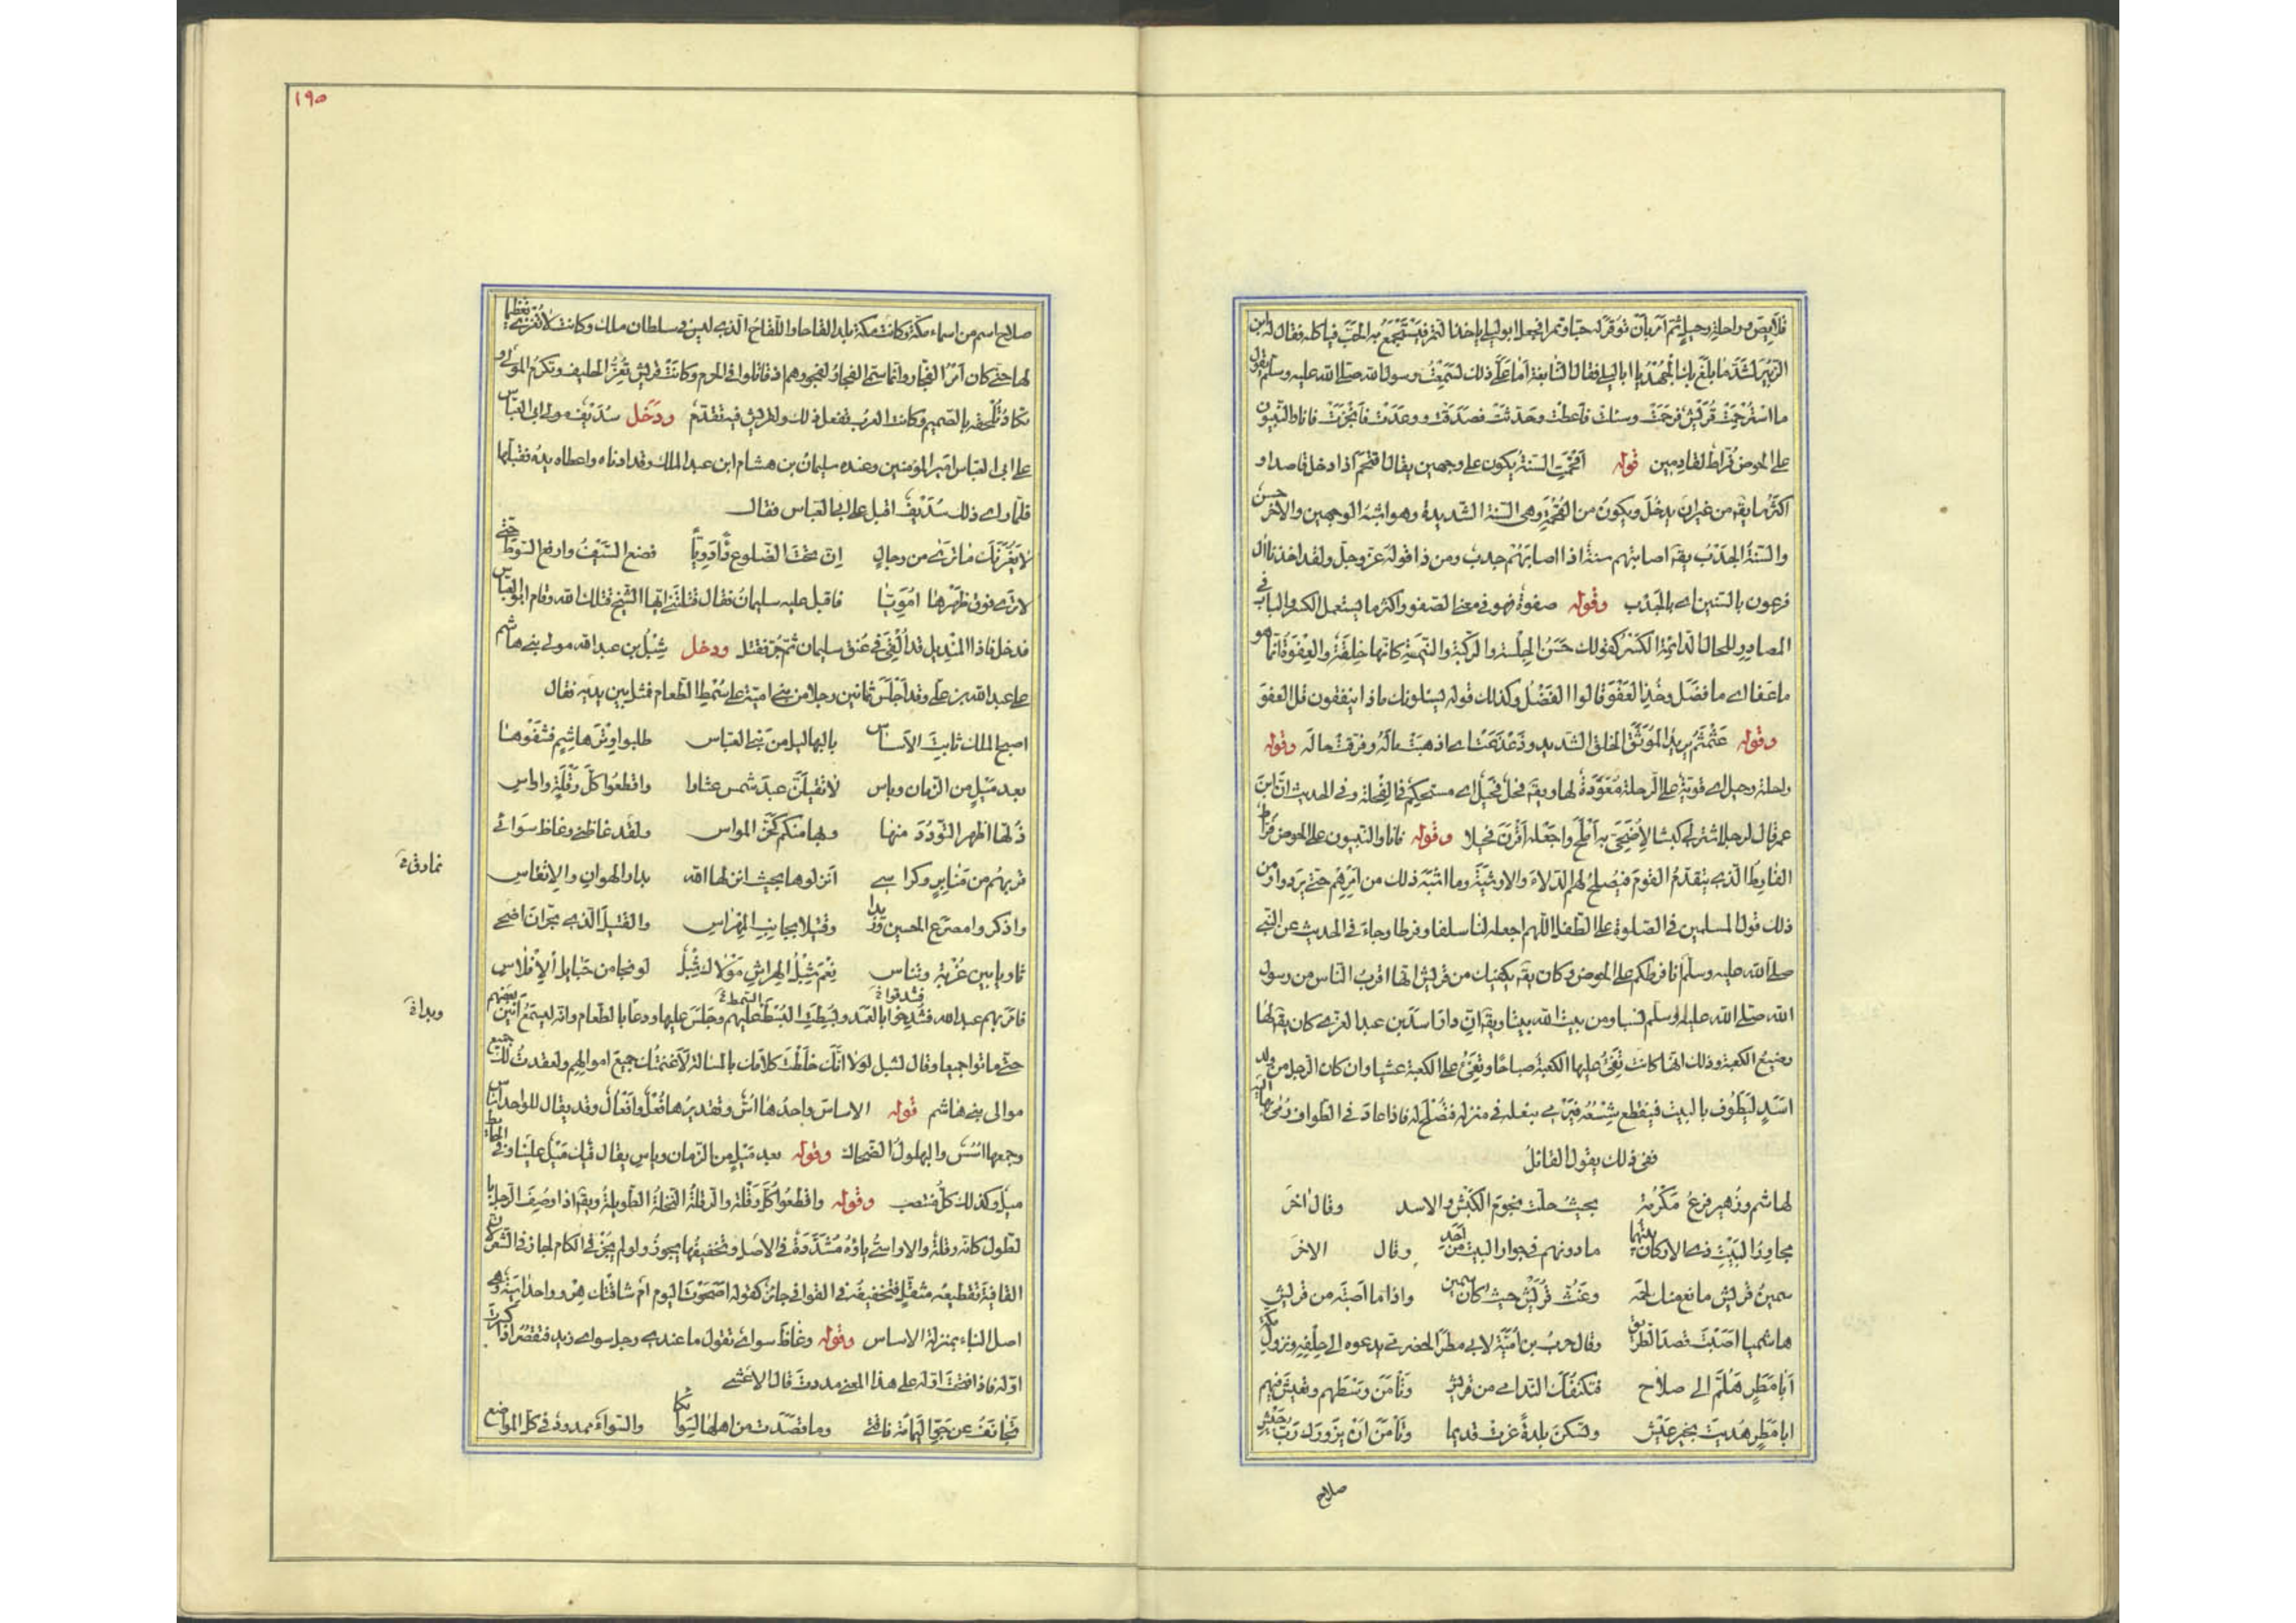 قلايص وراحلة رحيل ثم امر بان توقر له حبا وتمرا فجعل ابوليلى ياخذ التمر فيستجمع به الحب فياكله فقال له ابن
الزبير لشد ما بلغ بك الجهد يا ابا ليلى فقال النابغة اما على ذلك لسمعت رسول الله صلى الله عليه وسلم يقول
ما استرحمت قريش فرحمت وسئلت فاعطت وحدثت فصدقت ووعدت فانجزت فانا والنبيون
على الحوض فراط لقادمين قوله اقحمت السنة يكون على وجهين يقال اقتحم اذا دخل قاصدا و
اكثر ما يقع من غير ان يدخل ويكون من القحمة وهي السنة الشديدة وهو اشبه الوجهين والاخر حسن
والسنة الجدب يقه اصابتهم سنة اذا اصابهم جدب ومن ذا قوله عز وجل ولقد اخذنا ال
فرعون بالسنين اى بالجدب وقوله صفوة فهو في معنى الصفو واكثر ما يستعمل الكسر والباب في
المصادر للحال الدائمة الكسر كقولك حسن الجلسة والركبة والنيمة كانها خلقة والعفوة انما هو
ما عفا اى ما فضل وخذ العفو قالوا الفضل وكذلك قوله يسئلونك ماذا ينفقون قل العفو
وقوله عثمثم يريد الموثق الخلق الشديد وذعذعت اى اذهبت ماله وفرقت حاله وقوله
راحلة رحيل اى قوية على الرحلة معودة لها ويقه فحل فحيل اى مستحكم في الفحلة وفي الحديث ان ابن
عمر قال لرجل اشتر لي كبشا لاضحي به املح واجعله اقرن فحيلا وقوله فانا والنبيون على الحوض فراط
الفارط الذي يتقدم القوم فيصلح لهم الدلاء والارشية وما اشبه ذلك من امرهم حتى يردوا ومن
ذلك قول المسلمين في الصلوة على الطفل اللهم اجعله لنا سلفا وفرطا وجاء في الحديث عن النبي
صلى الله عليه وسلم انا فرطكم على الحوض وكان يقه يكفيك من قريش انها اقرب الناس من رسول
الله صلى الله عليه وسلم نسبا ومن بيت الله بيتا ويقه ان دار اسد بن عبد العزى كان يقه لها
رضيع الكعبة وذلك انها كانت تفئ عليها الكعبة صباحا وتفئ على الكعبة عشيا وان كان الرجل من ولد
اسد ليطوف بالبيت فينقطع شسعه فيرمي بنعله في منزله فتصلح له فاذا عاد في الطواف رمى بها اليه
ففى ذلك يقول القائل
لهاشم وزهير فرع مكرمة بحيث حلت نجوم الكبش والاسد وقال اخر
مجاور البيت ذى الاركان بيتهما ما دونهم في جوار البيت من احد وقال الاخر
سمين قريش مانع منك لحمه وغث قريش حيث كان سمين واذا ما اصبته من قريش
هاشميا اصبت قصد الطريق وقال حرب بن امية لابي مطر الحضرمي يدعوه الى حلفه ونزول مكة
ابا مطر هلم الى صلاح فتكنفك الندامى من قريش وتامن وسطهم وتعيش فيهم
ابا مطر هديت بخير عيش وتسكن بلدة عزت قديما وتامن ان يزورك رب جيش
صلاح
١٩٥
صلاح اسم من اسماء مكة وكانت مكة بلدا لقاحا واللقاح الذى ليس في سلطان ملك وكانت لا تغزى تعظيما
لها حتى كان امر الفجار وانما سمي الفجار لفجورهم اذ قاتلوا في الحرم وكانت قريش تعز الحليف وتكرم المولى و
تكاد تلحقه بالصميم وكانت العرب تفعل ذلك ولقريش فيه تقدم ودخل سديف مولى ابي العباس
على ابي العباس امير المؤمنين وعنده سليمان بن هشام ابن عبد الملك وقد ادناه واعطاه يده فقبلها
فلما راى ذلك سديف اقبل على ابي العباس فقال
لا يغرنك ما ترى من رجال ان تحت الضلوع داء دويا فضع السيف وارفع السوط حتى
لا ترى فوق ظهرها امويا فاقبل عليه سليمان فقال قتلتني ايها الشيخ قتلك الله وقام ابو العباس
فدخل فاذا المنديل قد القي في عنق سليمان ثم جر فقتل ودخل شبل بن عبد الله مولى بني هاشم
على عبد الله بن علي وقد اجلس ثمانين رجلا من بني امية على سمط الطعام فمثل بين يديه فقال
اصبح الملك ثابت الاساس بالبهاليل من بني العباس طلبوا وتر هاشم فشفوها
بعد ميل من الزمان وياس لا تقيلن عبد شمس عثارا واقطعوا كل رقلة واواسى
ذلها اظهر التودد منها وبها منكم كحز المواسى ولقد غاظني وغاظ سوائي
نمارق
قربهم من منابر وكراسي انزلوها بحيث انزلها الله بدار الهوان والاتعاس
واذكروا مصرع الحسين وزيدا وقتيلا بجانب المهراس والقتيل الذى بحران اضحى
ثاويا بين غربة وتناس نعم شبل الهراش مولاك شبل لو نجا من حبايل الافلاس
وبدا
فامر بهم عبد الله فشدخوا بالعمد وبسطت البسط عليهم وجلس عليها ودعا بالطعام وانه ليسمع انين بعضهم
حتى ماتوا جميعا وقال لشبل لولا انك خلطت كلامك بالمسالة لاغنمتك جميع اموالهم ولعقدت لك على جميع
موالى بني هاشم قوله الاساس واحدها اس وتقديرها فعل وافعال وقد يقال للواحد اساس
وجمعها اسس والبهلول الضحاك وقوله بعد ميل من الزمان وياس يقال فيك ميل علينا وفي الحائط
ميل وكذلك كل منتصب وقوله واقطعوا كل رقلة والرقلة النخلة الطويلة ويقه اذا وصف الرجل با
لطول كانه رقلة والاواسي ياؤه مشددة في الاصل وتخفيفها يجوز ولو لم يجز في الكلام لجاز في الشعر
القافية تقطيعه مثقل فتخفيفه في القوافي جائز كقوله اصحوت اليوم ام شاقتك هر وواحدها اسية وهي
اصل البناء بمنزلة الاساس وقوله وغاظ سوائي تقول ما عندى رجل سوى زيد فتقصر اذا كسرت
اوله فاذا فتحت اوله على هذا المعنى مددت قال الاعشى
تجانف عن جو اليمامة ناقتي وما قصدت من اهلها لسوائكا والسواء ممدود في كل المواضع